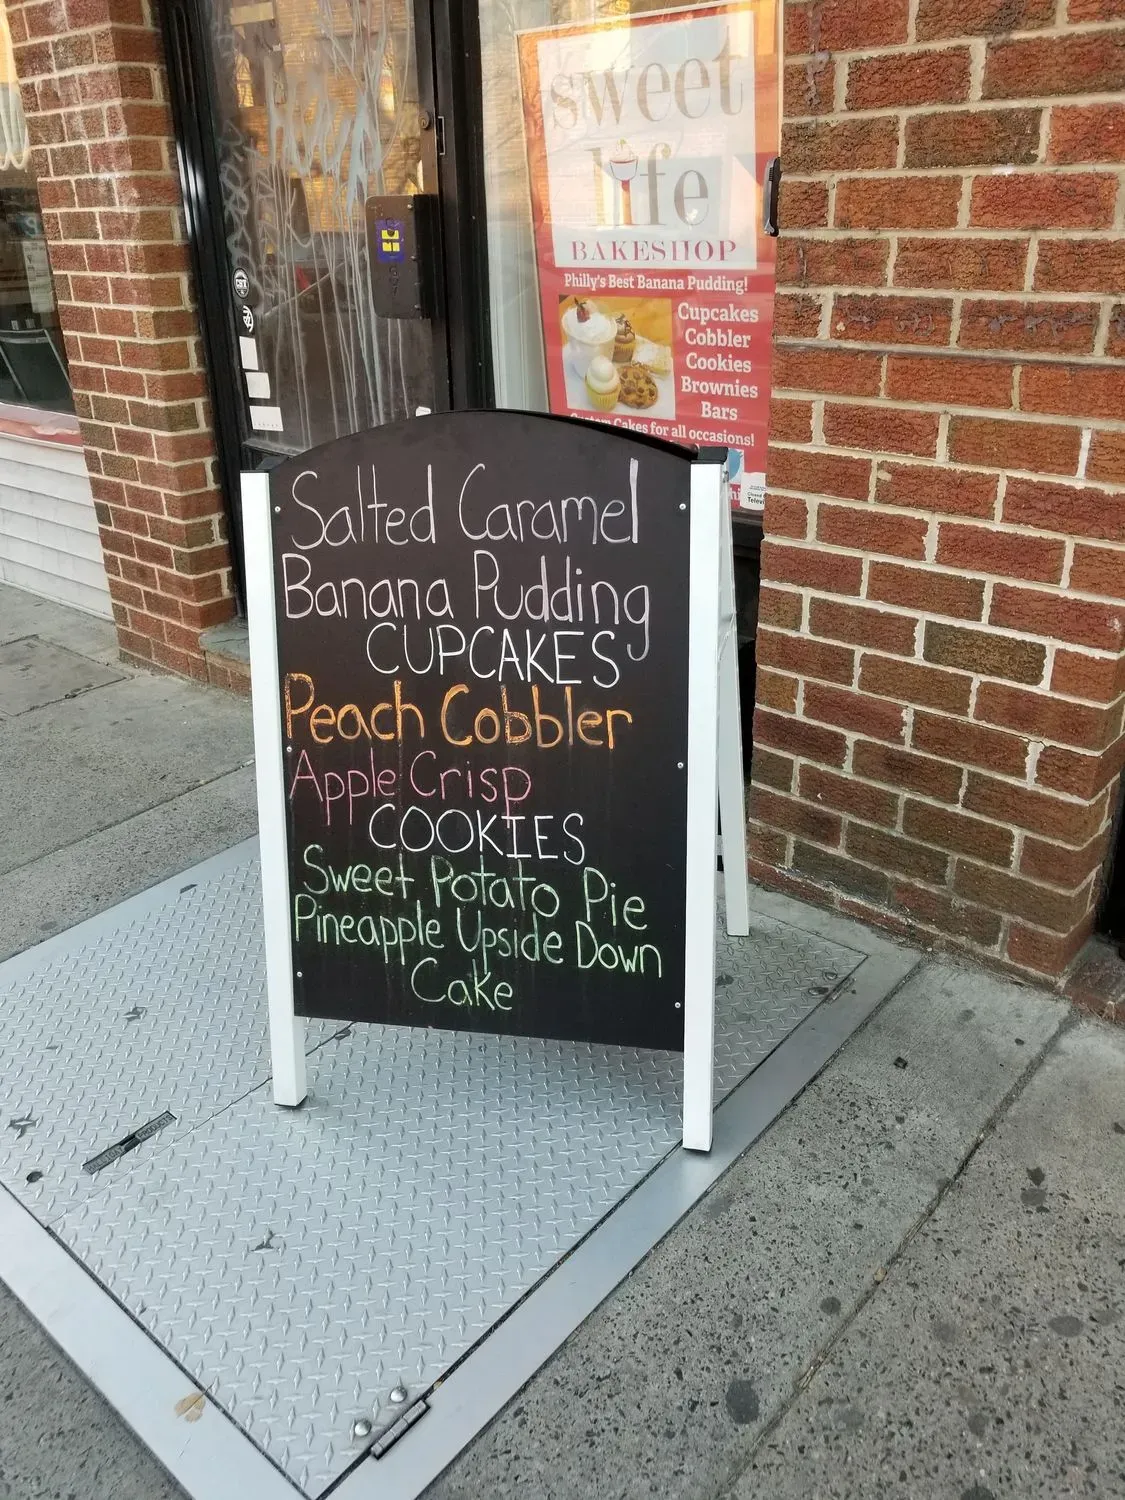 sweet
life
BAKESHOP
Philly's Best Banana Pudding!
Cupcakes
Cobbler
Cookies
Brownies
Bars
Custom Cakes for all occasions!
Salted Caramel
Banana Pudding
CUPCAKES
Peach Cobbler
Apple Crisp
COOKIES
Sweet Potato Pie
Pineapple Upside Down
Cake